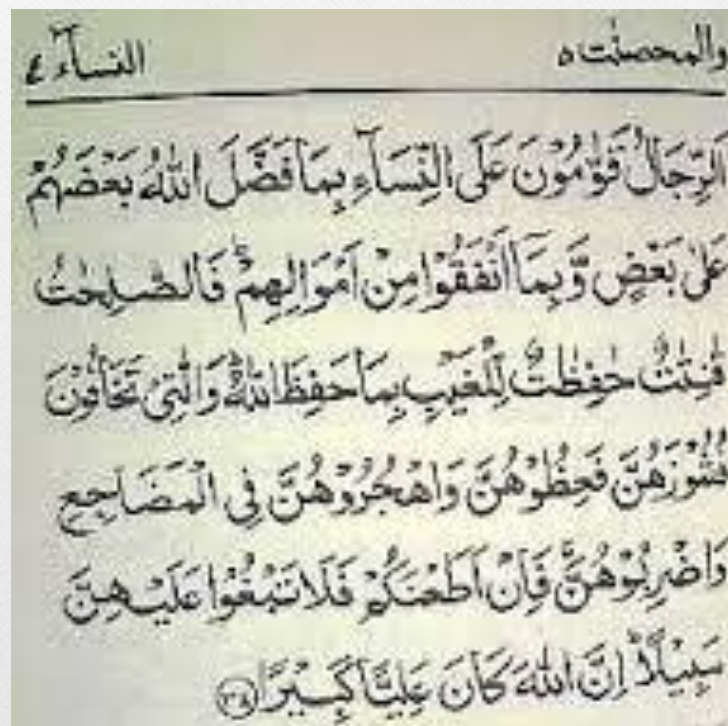 والمحصنت ٥ النسآء ٤
اَلرِّجَالُ قَوّٰمُوْنَ عَلَى النِّسَآءِ بِمَا فَضَّلَ اللّٰهُ بَعْضَهُمْ
عَلٰى بَعْضٍ وَّبِمَآ اَنْفَقُوْا مِنْ اَمْوَالِهِمْ ؕ فَالصّٰلِحٰتُ
قٰنِتٰتٌ حٰفِظٰتٌ لِّلْغَيْبِ بِمَا حَفِظَ اللّٰهُ ؕ وَالّٰتِيْ تَخَافُوْنَ
نُشُوْزَهُنَّ فَعِظُوْهُنَّ وَاهْجُرُوْهُنَّ فِي الْمَضَاجِعِ
وَاضْرِبُوْهُنَّ ۚ فَاِنْ اَطَعْنَكُمْ فَلَا تَبْغُوْا عَلَيْهِنَّ
سَبِيْلًا ؕ اِنَّ اللّٰهَ كَانَ عَلِيًّا كَبِيْرًا ﴿٣٤﴾